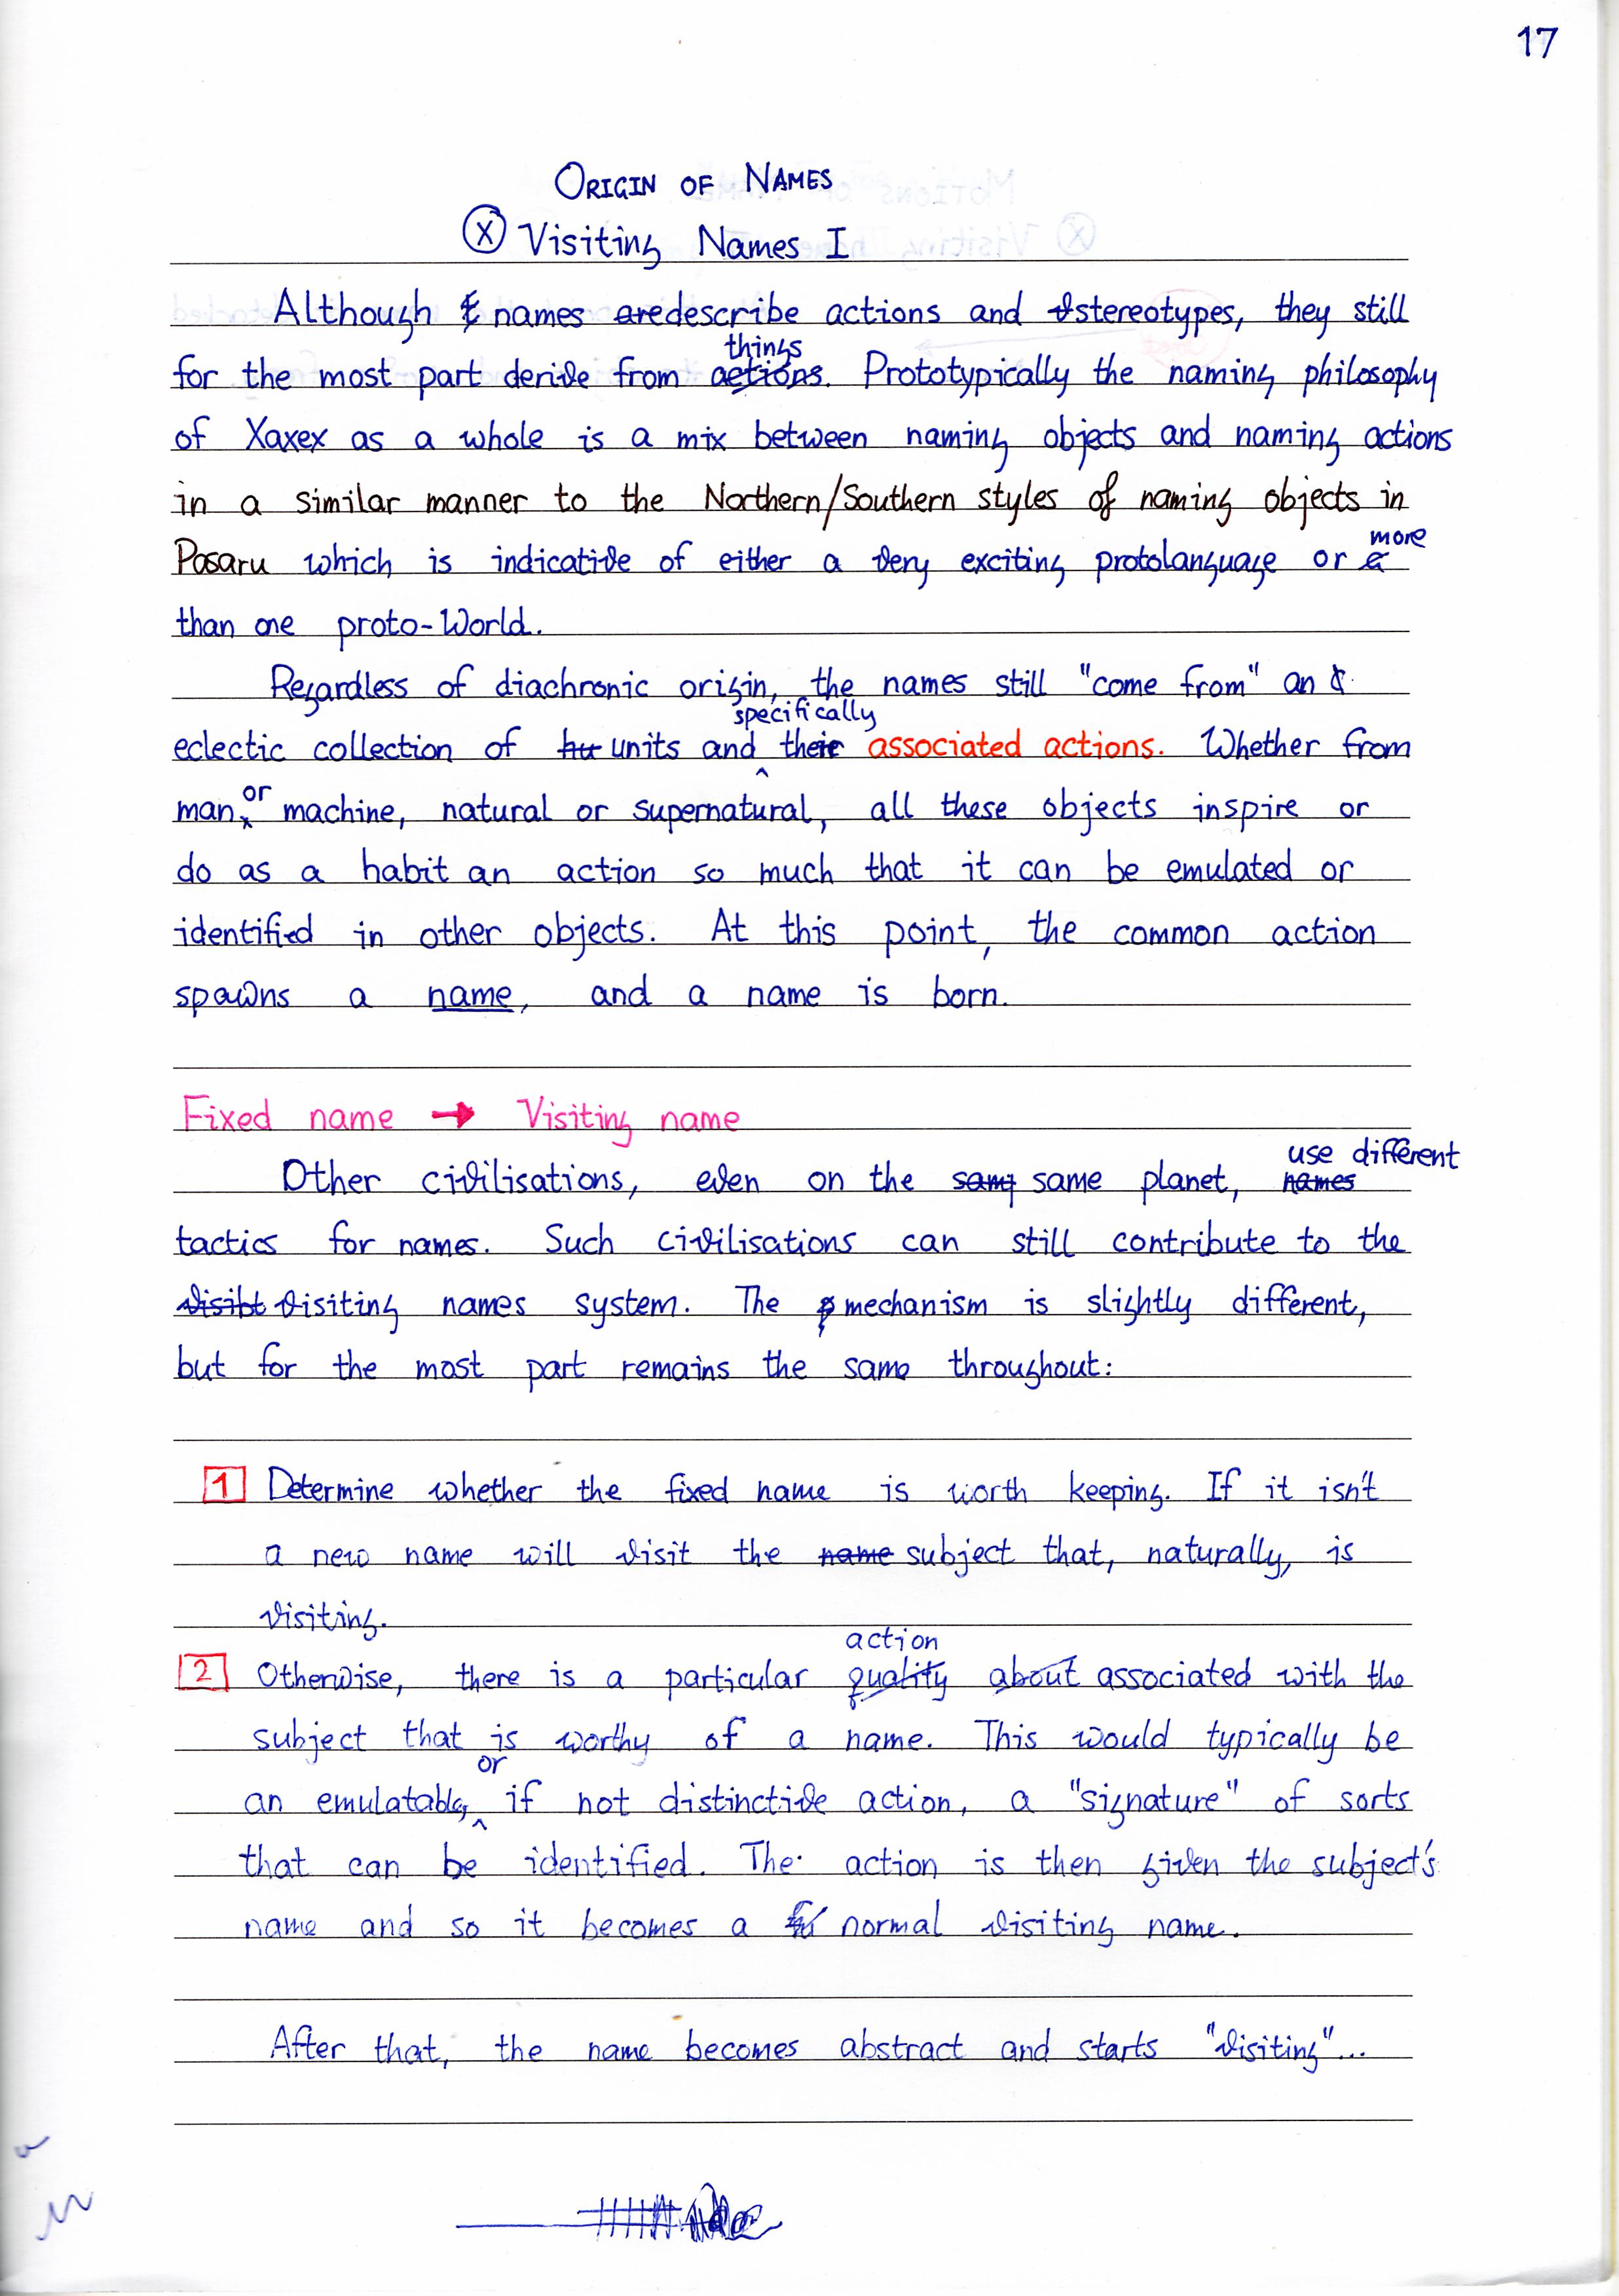 17
ORIGIN OF NAMES
Ⓧ Visiting Names I
Although names describe actions and stereotypes, they still
things
for the most part derive from actions. Prototypically the naming philosophy
of Xaxex as a whole is a mix between naming objects and naming actions
in a similar manner to the Northern/Southern styles of naming objects in
more
Posaru which is indicative of either a very exciting protolanguage or a
than one proto-World.
Regardless of diachronic origin, the names still "come from" an
specifically
eclectic collection of hu units and their associated actions. Whether from
or
man, machine, natural or supernatural, all these objects inspire or
do as a habit an action so much that it can be emulated or
identified in other objects. At this point, the common action
spawns a name, and a name is born.
Fixed name → Visiting name
use different
Other civilisations, even on the same planet, names
tactics for names. Such civilisations can still contribute to the
visibt visiting names system. The mechanism is slightly different,
but for the most part remains the same throughout:
1 Determine whether the fixed name is worth keeping. If it isn't
a new name will visit the name subject that, naturally, is
visiting.
action
2 Otherwise, there is a particular quality about associated with the
subject that is worthy of a name. This would typically be
or
an emulatable, if not distinctive action, a "signature" of sorts
that can be identified. The action is then given the subject's
name and so it becomes a normal visiting name.
After that, the name becomes abstract and starts "visiting"...